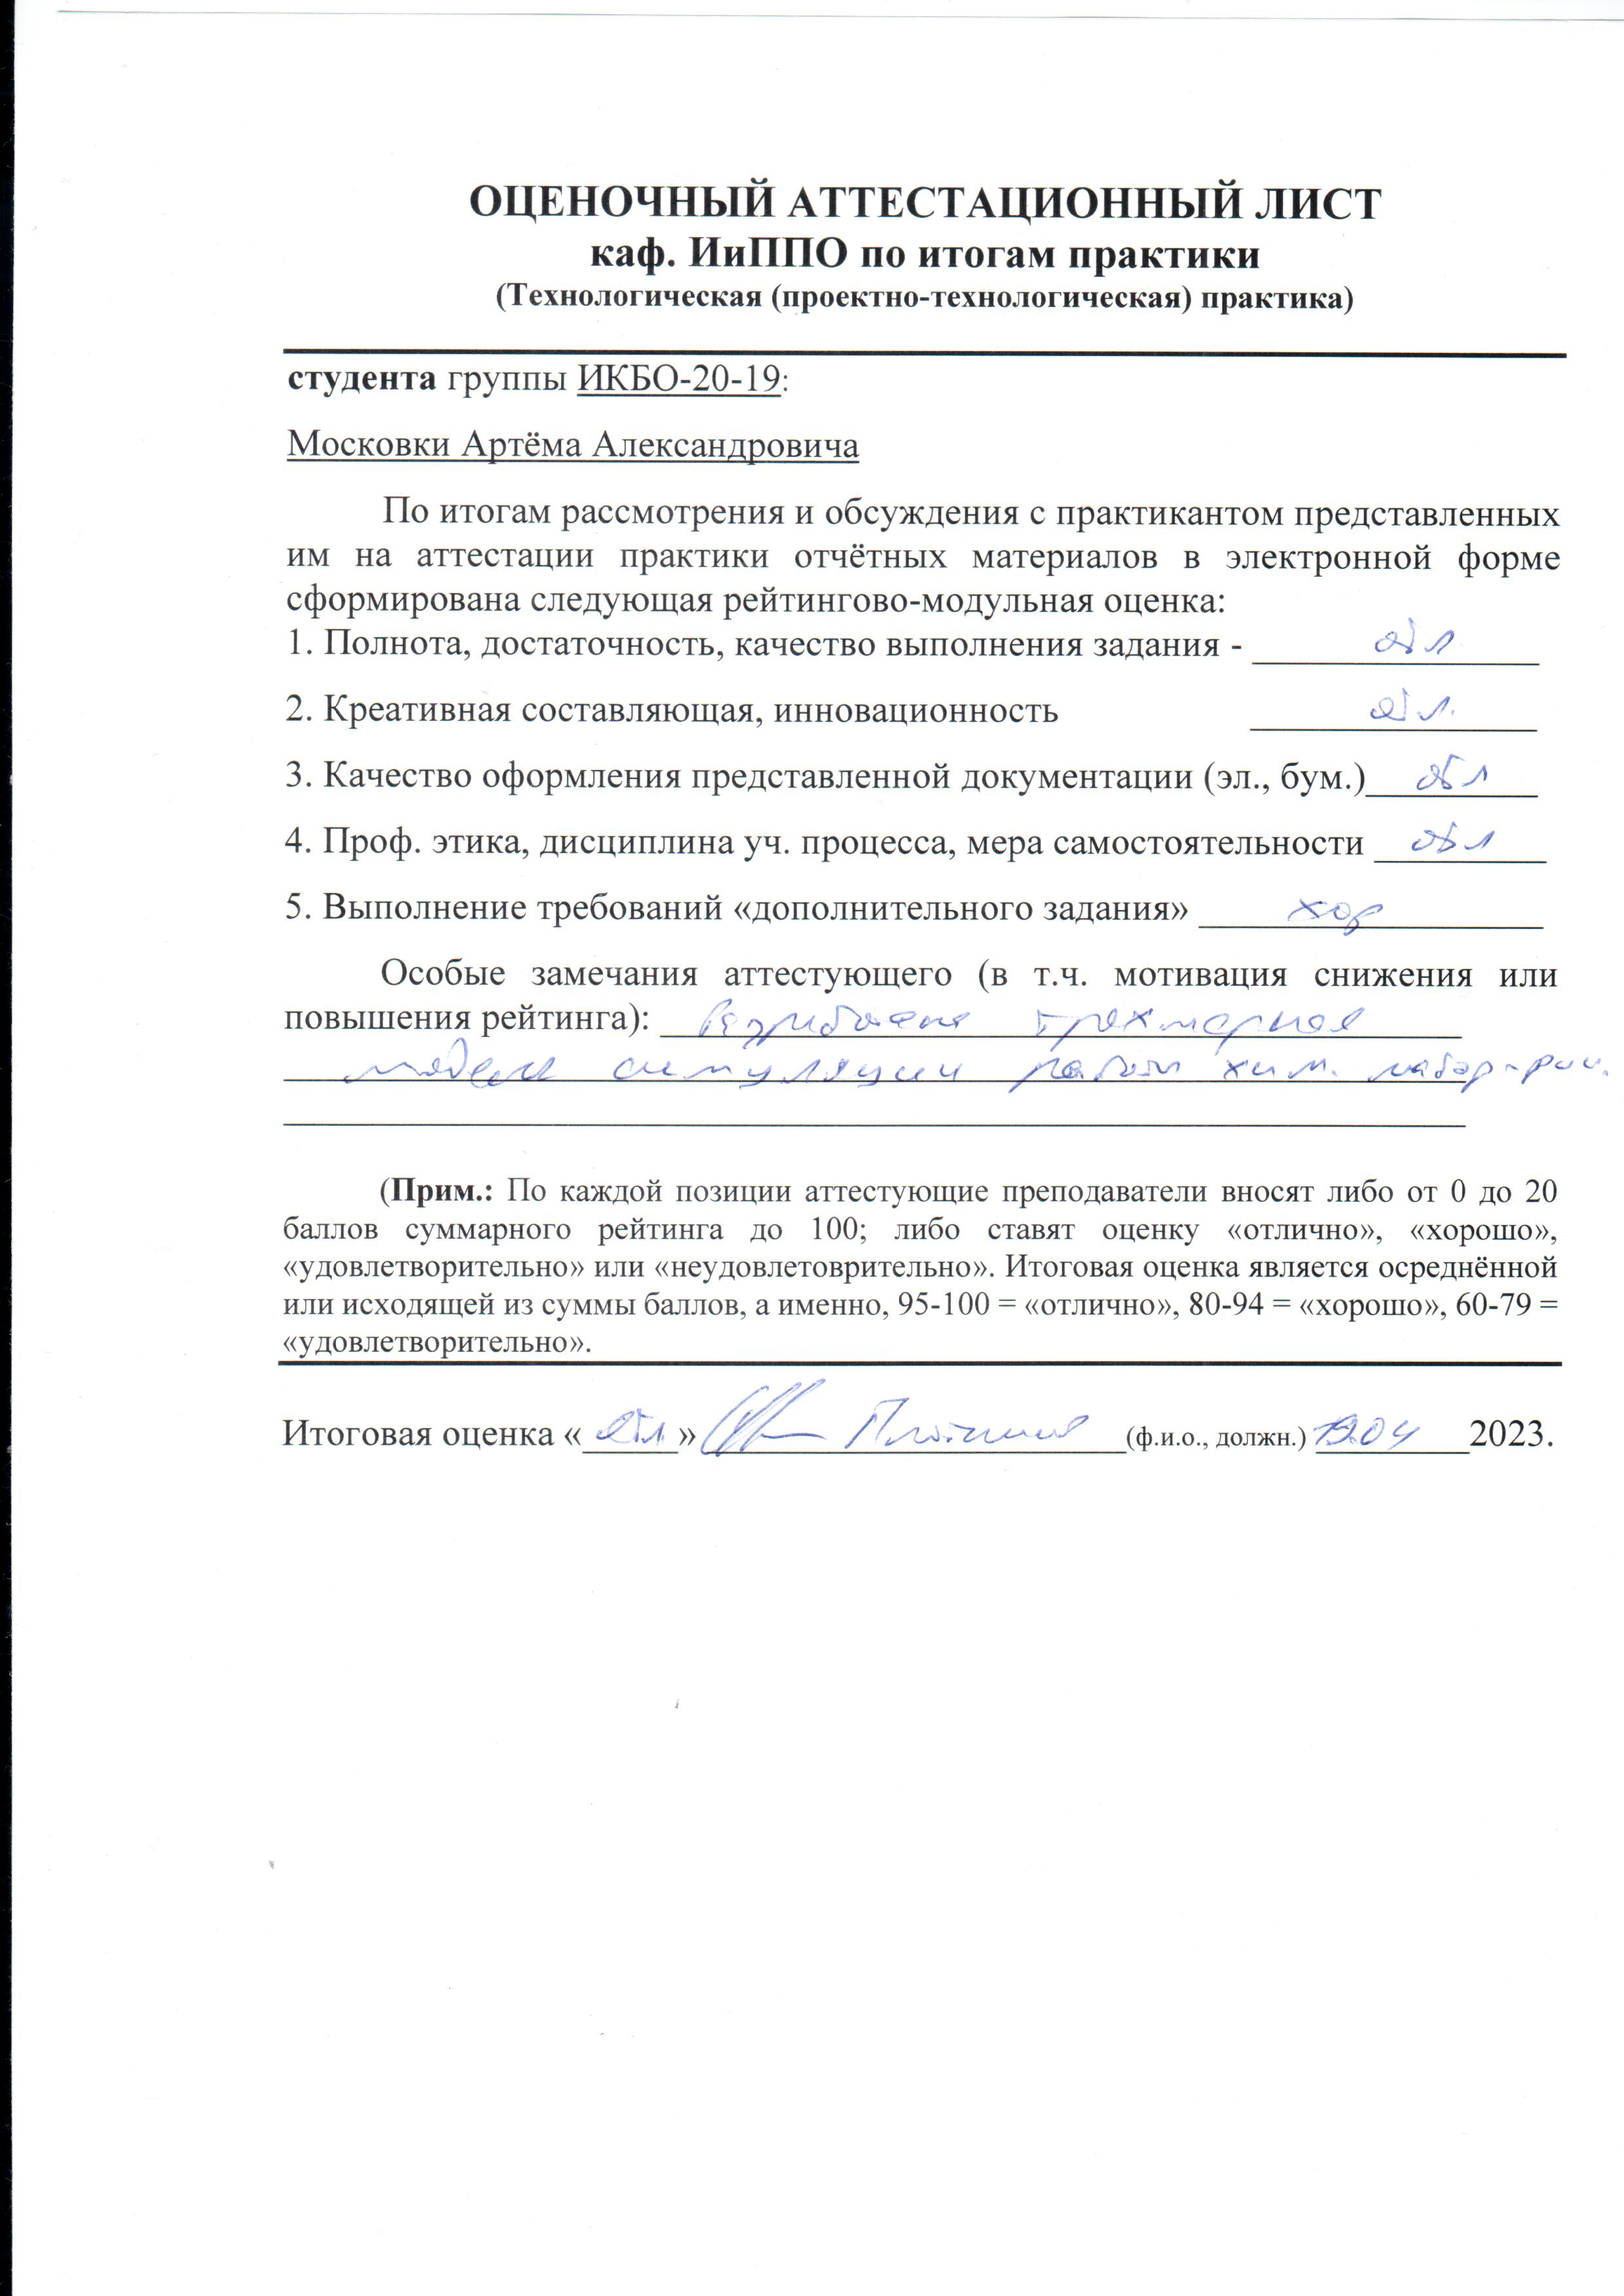 ОЦЕНОЧНЫЙ АТТЕСТАЦИОННЫЙ ЛИСТ
каф. ИиППО по итогам практики
(Технологическая (проектно-технологическая) практика)
студента группы ИКБО-20-19:
Московки Артёма Александровича
По итогам рассмотрения и обсуждения с практикантом представленных
им на аттестации практики отчётных материалов в электронной форме
сформирована следующая рейтингово-модульная оценка:
1. Полнота, достаточность, качество выполнения задания - отл
2. Креативная составляющая, инновационность отл.
3. Качество оформления представленной документации (эл., бум.) отл
4. Проф. этика, дисциплина уч. процесса, мера самостоятельности отл
5. Выполнение требований «дополнительного задания» хор
Особые замечания аттестующего (в т.ч. мотивация снижения или
повышения рейтинга): Разработана трехмерная
модель симуляции работы хим. лабор-рии.
(Прим.: По каждой позиции аттестующие преподаватели вносят либо от 0 до 20
баллов суммарного рейтинга до 100; либо ставят оценку «отлично», «хорошо»,
«удовлетворительно» или «неудовлетоврительно». Итоговая оценка является осреднённой
или исходящей из суммы баллов, а именно, 95-100 = «отлично», 80-94 = «хорошо», 60-79 =
«удовлетворительно».
Итоговая оценка «отл» (ф.и.о., должн.) 19.04 2023.